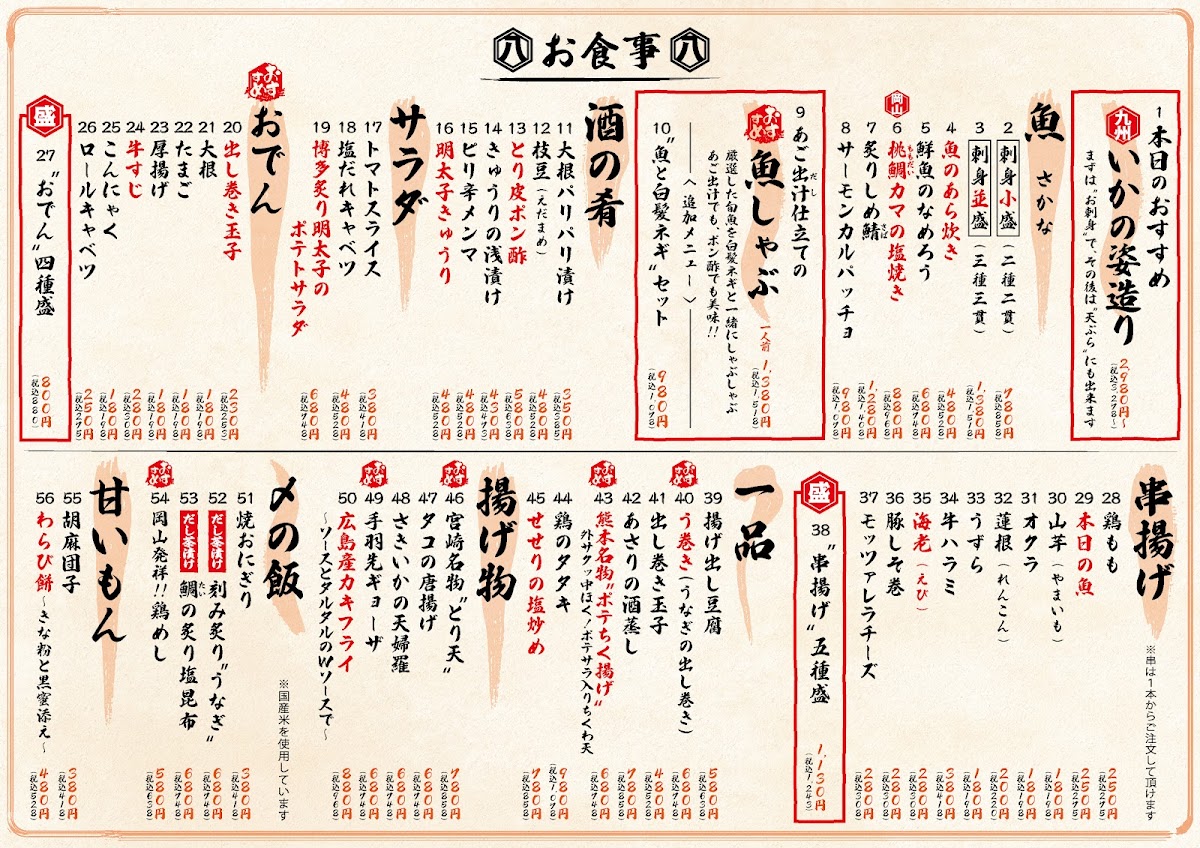 八 お食事 八
九州
1 本日のおすすめ
いかの姿造り
2,980円～
(税込3,278～)
まずは"お刺身"で、その後は"天ぷら"にも出来ます
魚 さかな
2 刺身小盛 (二種二貫) 780円 (税込858)
3 刺身並盛 (三種三貫) 1,380円 (税込1,518)
4 魚のあら炊き 480円 (税込528)
5 鮮魚のなめろう 680円 (税込748)
岡山
6 桃鯛カマの塩焼き 880円 (税込968)
ももだい
7 炙りしめ鯖 1,280円 (税込1,408)
さば
8 サーモンカルパッチョ 980円 (税込1,078)
9 あご出汁仕立ての
だし
おすすめ
魚しゃぶ
一人前 1,380円
(税込1,518)
厳選した旬魚を白髪ネギと一緒にしゃぶしゃぶ
あご出汁でも、ポン酢でも美味!!
〈追加メニュー〉
10 "魚と白髪ネギ"セット 980円 (税込1,078)
酒の肴
11 大根パリパリ漬け 350円 (税込385)
12 枝豆(えだまめ) 480円 (税込528)
13 とり皮ポン酢 580円 (税込638)
14 きゅうりの浅漬け 430円 (税込473)
15 ピリ辛メンマ 480円 (税込528)
16 明太子きゅうり 480円 (税込528)
サラダ
17 トマトスライス 380円 (税込418)
18 塩だれキャベツ 480円 (税込528)
19 博多炙り明太子の
ポテトサラダ 680円 (税込748)
おすすめ
おでん
20 出し巻き玉子 230円 (税込253)
21 大根 180円 (税込198)
22 たまご 180円 (税込198)
23 厚揚げ 180円 (税込198)
24 牛すじ 280円 (税込308)
25 こんにゃく 180円 (税込198)
26 ロールキャベツ 250円 (税込275)
盛
27 "おでん"四種盛 800円 (税込880)
串揚げ
※串は1本からご注文して頂けます
28 鶏もも 250円 (税込275)
29 本日の魚 250円 (税込275)
30 山芋(やまいも) 180円 (税込198)
31 オクラ 180円 (税込198)
32 蓮根(れんこん) 200円 (税込220)
33 うずら 180円 (税込198)
34 牛ハラミ 380円 (税込418)
35 海老(えび) 280円 (税込308)
36 豚しそ巻 280円 (税込308)
37 モッツァレラチーズ 280円 (税込308)
盛
38 "串揚げ"五種盛 1,130円 (税込1,243)
一品
39 揚げ出し豆腐 580円 (税込638)
おすすめ
40 う巻き(うなぎの出し巻き) 680円 (税込748)
41 出し巻き玉子 480円 (税込528)
42 あさりの酒蒸し 780円 (税込858)
おすすめ
43 熊本名物"ポテちく揚げ" 680円 (税込748)
外サクッ中ほく!ポテサラ入りちくわ天
44 鶏のタタキ 980円 (税込1,078)
45 せせりの塩炒め 780円 (税込858)
揚げ物
おすすめ
46 宮崎名物"とり天" 780円 (税込858)
47 タコの唐揚げ 680円 (税込748)
48 さきいかの天婦羅 680円 (税込748)
おすすめ
49 手羽先ギョーザ 680円 (税込748)
50 広島産カキフライ 880円 (税込968)
～ソースとタルタルのWソースで～
〆の飯
※国産米を使用しています
51 焼おにぎり 380円 (税込418)
52 だし茶漬け 刻み炙り"うなぎ" 680円 (税込748)
53 だし茶漬け 鯛の炙り塩昆布 680円 (税込748)
たい
おすすめ
54 岡山発祥!!鶏めし 580円 (税込638)
甘いもん
55 胡麻団子 380円 (税込418)
56 わらび餅～きな粉と黒蜜添え～ 480円 (税込528)